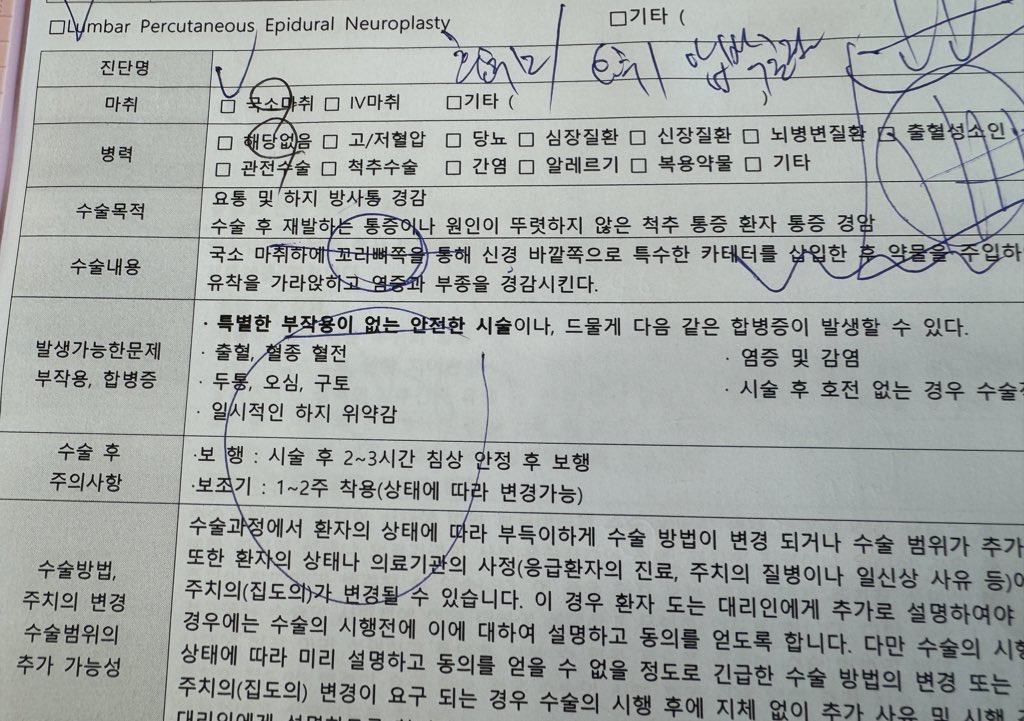 □Lumbar Percutaneous Epidural Neuroplasty □기타 (
진단명
마취 □ 국소마취 □ IV마취 □기타 ( )
병력 □ 해당없음 □ 고/저혈압 □ 당뇨 □ 심장질환 □ 신장질환 □ 뇌병변질환 □ 출혈성소인
□ 관전수술 □ 척추수술 □ 간염 □ 알레르기 □ 복용약물 □ 기타
수술목적 요통 및 하지 방사통 경감
수술 후 재발하는 통증이나 원인이 뚜렷하지 않은 척추 통증 환자 통증 경암
수술내용 국소 마취하에 꼬리뼈쪽을 통해 신경 바깥쪽으로 특수한 카테터를 삽입한 후 약물을 주입하
유착을 가라앉하고 염증과 부종을 경감시킨다.
발생가능한문제
부작용, 합병증
· 특별한 부작용이 없는 안전한 시술이나, 드물게 다음 같은 합병증이 발생할 수 있다.
· 출혈, 혈종 혈전 · 염증 및 감염
· 두통, 오심, 구토 · 시술 후 호전 없는 경우 수술
· 일시적인 하지 위약감
수술 후
주의사항
·보 행 : 시술 후 2~3시간 침상 안정 후 보행
·보조기 : 1~2주 착용(상태에 따라 변경가능)
수술방법,
주치의 변경
수술범위의
추가 가능성
수술과정에서 환자의 상태에 따라 부득이하게 수술 방법이 변경 되거나 수술 범위가 추가
또한 환자의 상태나 의료기관의 사정(응급환자의 진료, 주치의 질병이나 일신상 사유 등)에
주치의(집도의)가 변경될 수 있습니다. 이 경우 환자 도는 대리인에게 추가로 설명하여야
경우에는 수술의 시행전에 이에 대하여 설명하고 동의를 얻도록 합니다. 다만 수술의 시행
상태에 따라 미리 설명하고 동의를 얻을 수 없을 정도로 긴급한 수술 방법의 변경 또는
주치의(집도의) 변경이 요구 되는 경우 수술의 시행 후에 지체 없이 추가 사유 및 시행